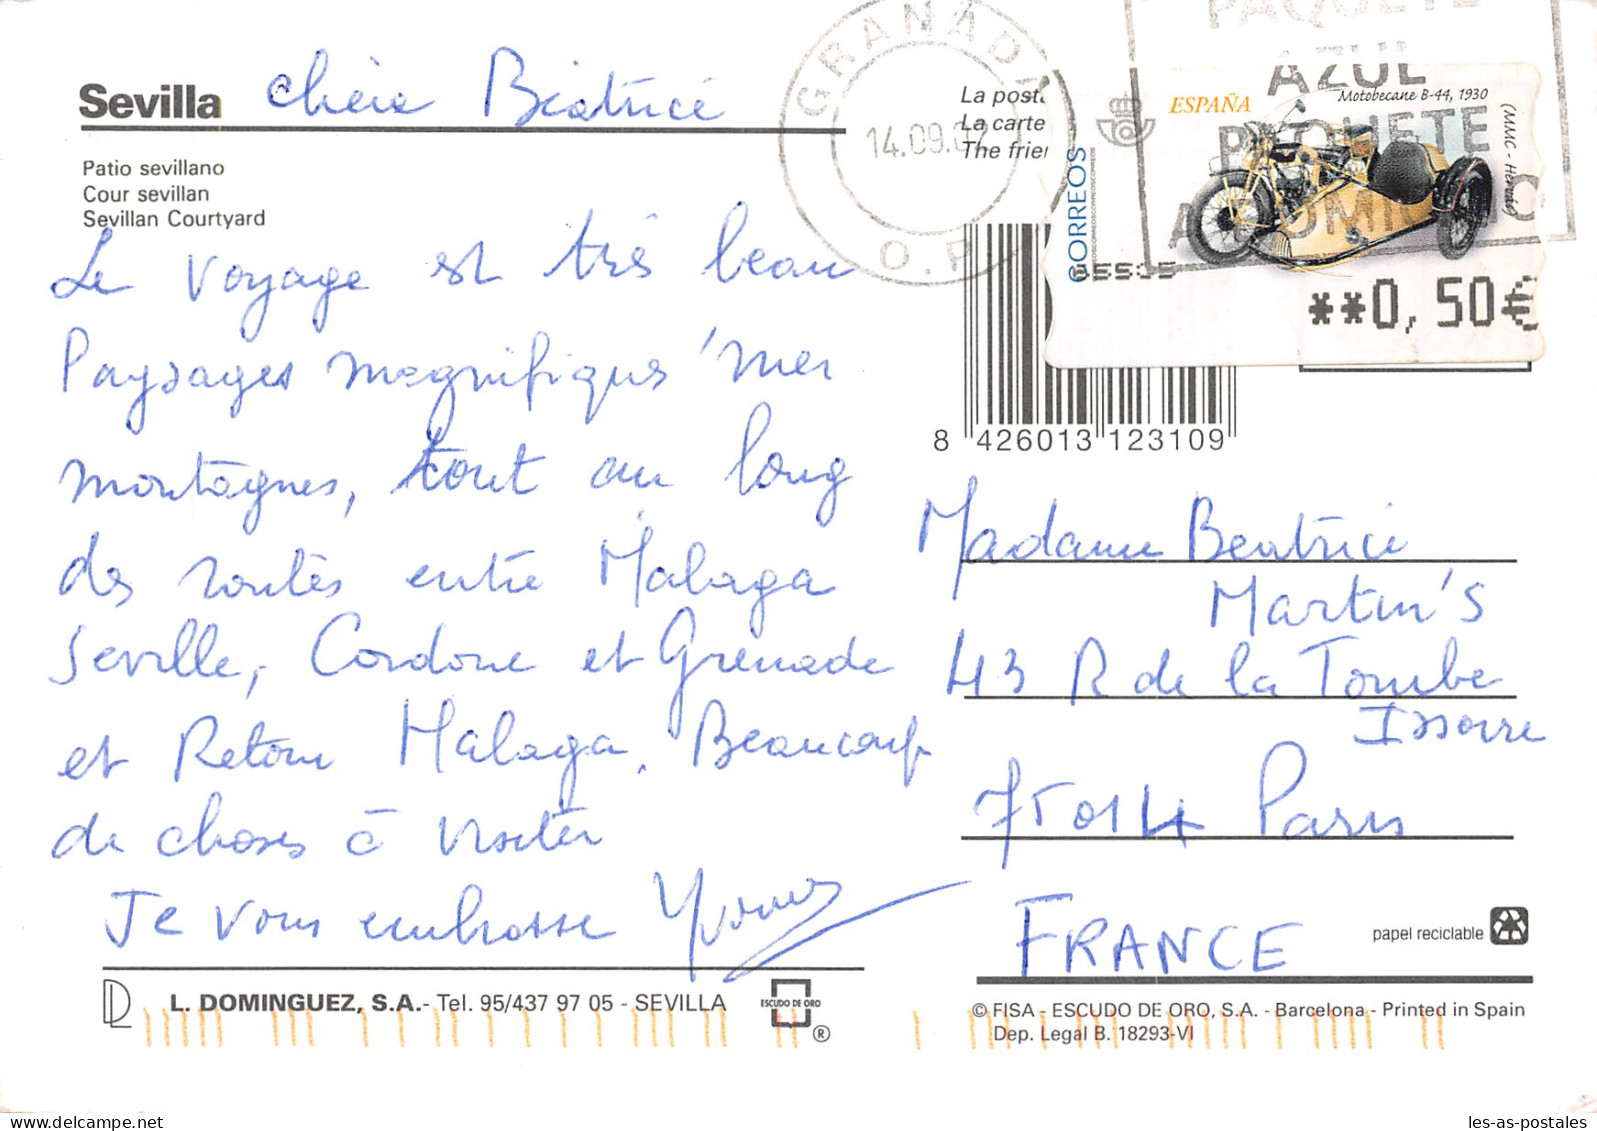 Sevilla Chère Béatrice
Patio sevillano
Cour sevillan
Sevillan Courtyard
Le voyage est très beau
Paysages magnifiques mer
montagnes, tout au long
des routes entre Malaga
Seville, Cordoue et Grenade
et Retour Malaga. Beaucoup
de choses à visiter
Je vous embrasse
L. DOMINGUEZ, S.A.- Tel. 95/437 97 05 - SEVILLA
ESCUDO DE ORO
®
GRANADA
14.09.0
O.P
La post
La carte
The frie
PAQUETE
AZUL
PAQUETE
A DOMICILIO
ESPAÑA
Motobecane B-44, 1930
CORREOS
**0,50€
8 426013 123109
Madame Beatrice
Martin's
43 R de la Tombe
Issoire
75014 Paris
FRANCE
papel reciclable
© FISA - ESCUDO DE ORO, S.A. - Barcelona - Printed in Spain
Dep. Legal B. 18293-VI
les-as-postales